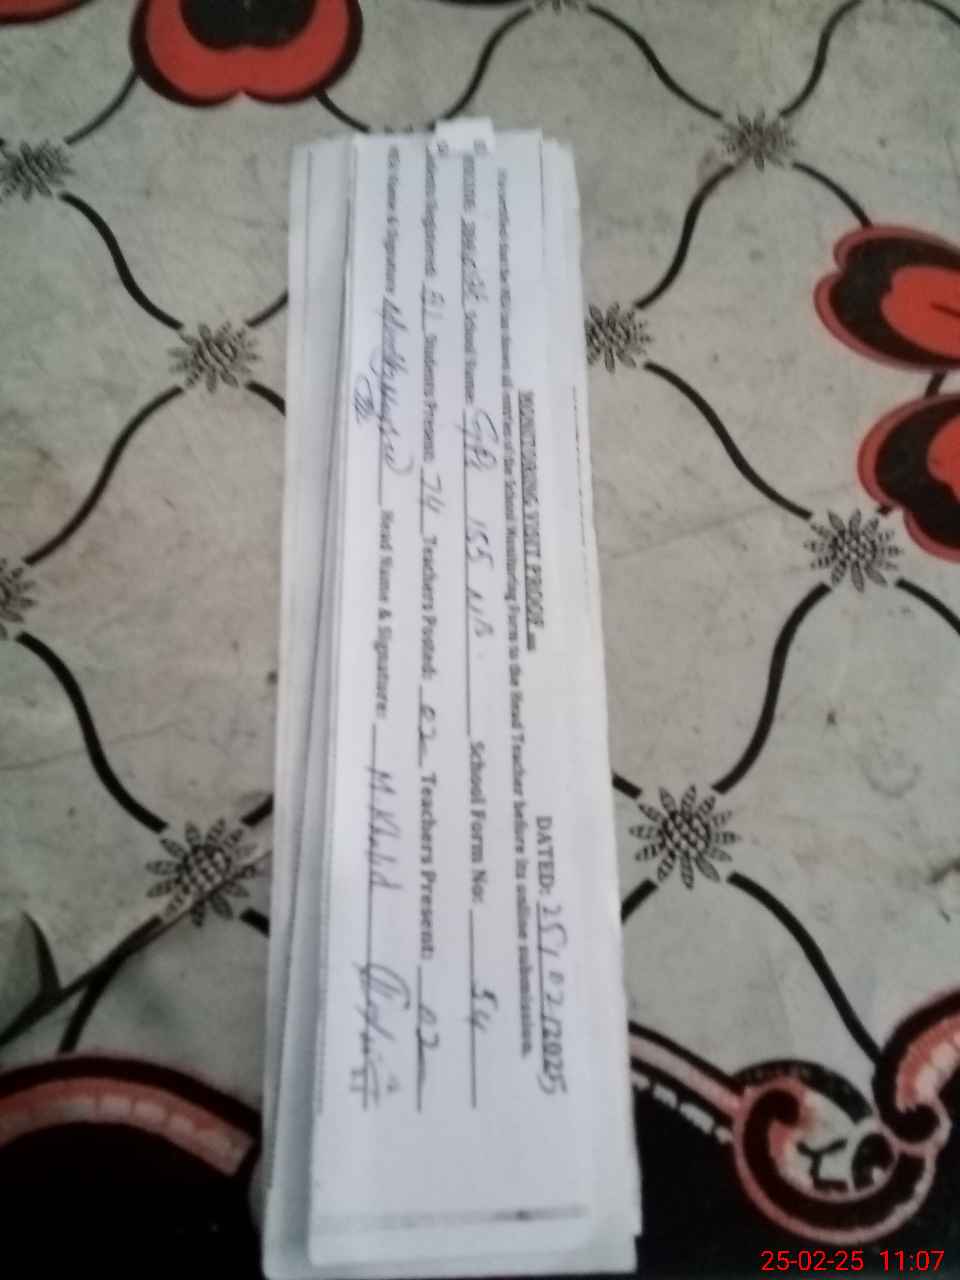 MONITORING VISIT PROOF
DATED: 25/02/2025
This certifies that the MEA has shown all entries of the School Monitoring Form to the Head Teacher before its online submission.
School Name: GPS 155 NB. School Form No: 54
Students Registered: 81 Students Present: 74 Teachers Posted: 02 Teachers Present: 02
MEA Name & Signature Head Name & Signature: M. Khalid
25-02-25 11:07